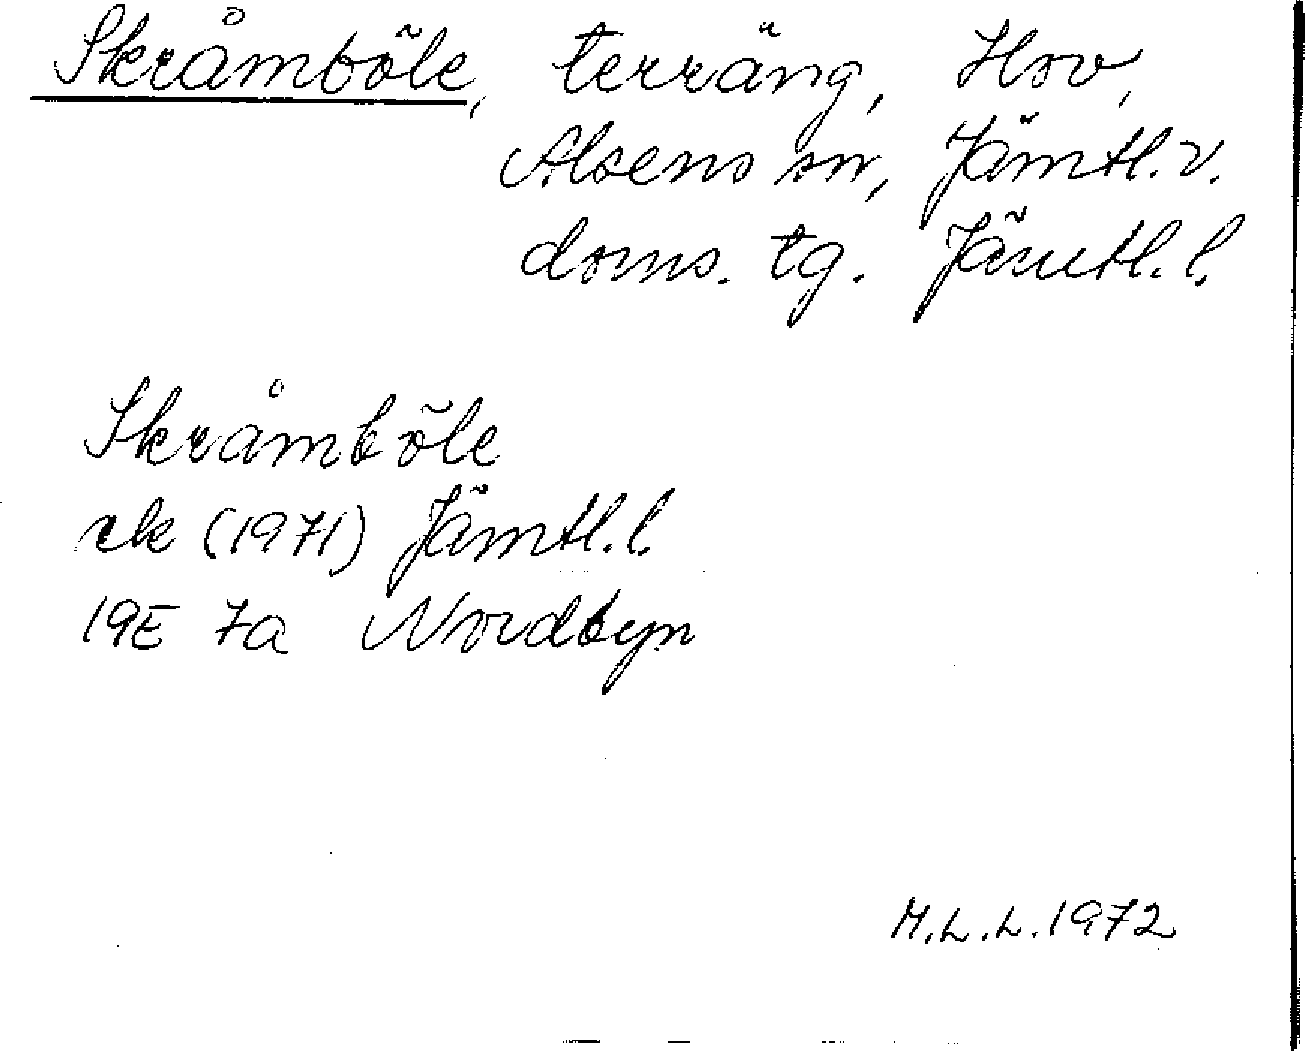 Skråmböle, terräng, Hov,
Alsens sn, Jämtl. v.
doms. tg. Jämtl. l.
Skråmböle
rk (1971) Jämtl. l.
19E 7a Nordbyn
M.L.L. 1972